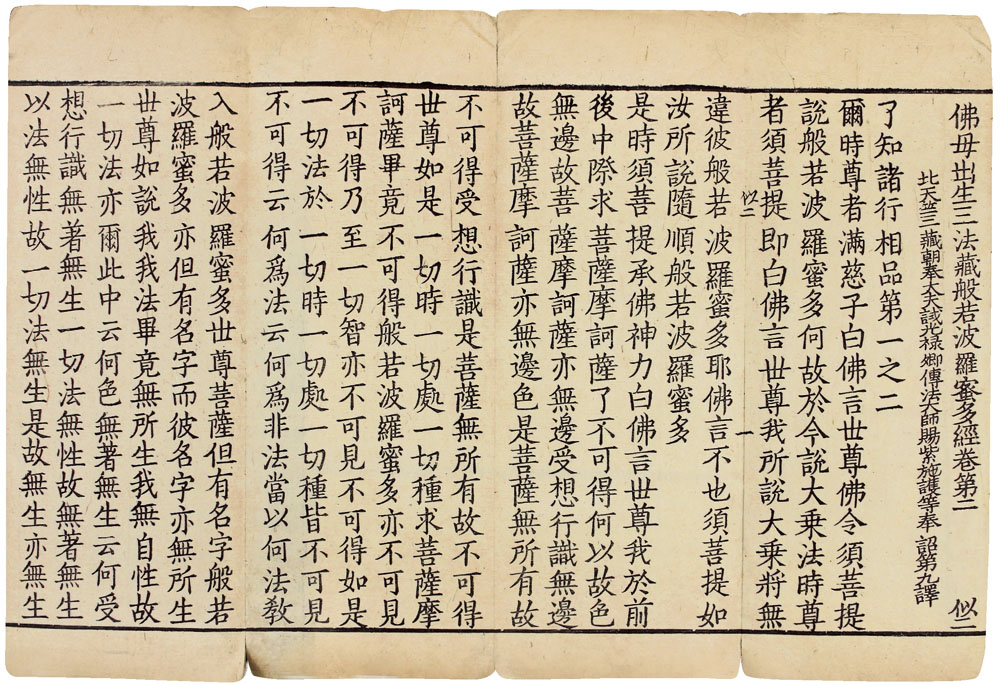 佛母出生三法藏般若波羅蜜多經卷第二 似二
北天竺三藏朝奉大夫試光祿卿傳法大師賜紫施護等奉 詔第九譯
了知諸行相品第一之二
爾時尊者滿慈子白佛言世尊佛令須菩提
說般若波羅蜜多何故於今說大乘法時尊
者須菩提即白佛言世尊我所說大乘將無
似二 一
違彼般若波羅蜜多耶佛言不也須菩提如
汝所說隨順般若波羅蜜多
是時須菩提承佛神力白佛言世尊我於前
後中際求菩薩摩訶薩了不可得何以故色
無邊故菩薩摩訶薩亦無邊受想行識無邊
故菩薩摩訶薩亦無邊色是菩薩無所有故
不可得受想行識是菩薩無所有故不可得
世尊如是一切時一切處一切種求菩薩摩
訶薩畢竟不可得般若波羅蜜多亦不可見
不可得乃至一切智亦不可見不可得如是
一切法於一切時一切處一切種皆不可見
不可得云何爲法云何爲非法當以何法教
入般若波羅蜜多世尊菩薩但有名字般若
波羅蜜多亦但有名字而彼名字亦無所生
世尊如說我我法畢竟無所生我無自性故
一切法亦爾此中云何色無著無生云何受
想行識無著無生一切法無性故無著無生
以法無性故一切法無生是故無生亦無生